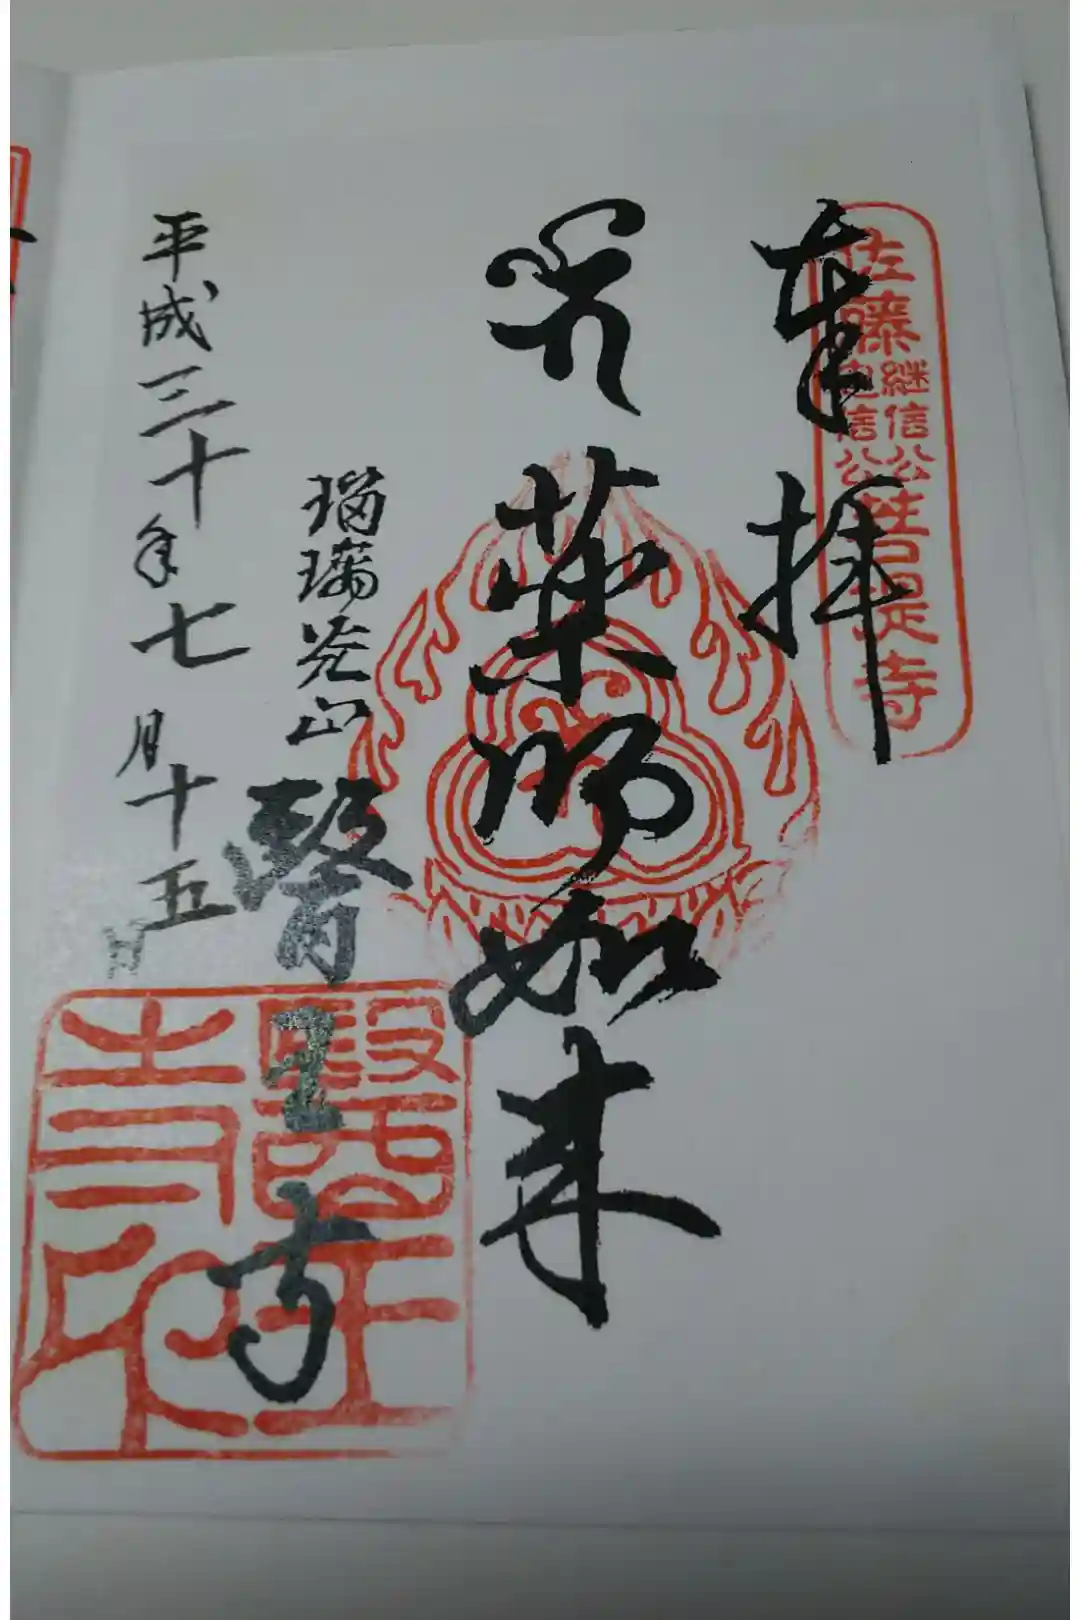 佐藤継信公忠信公菩提寺
奉拝
薬師如来
瑠璃光山
醫王寺
醫王寺印
平成三十年七月十五日